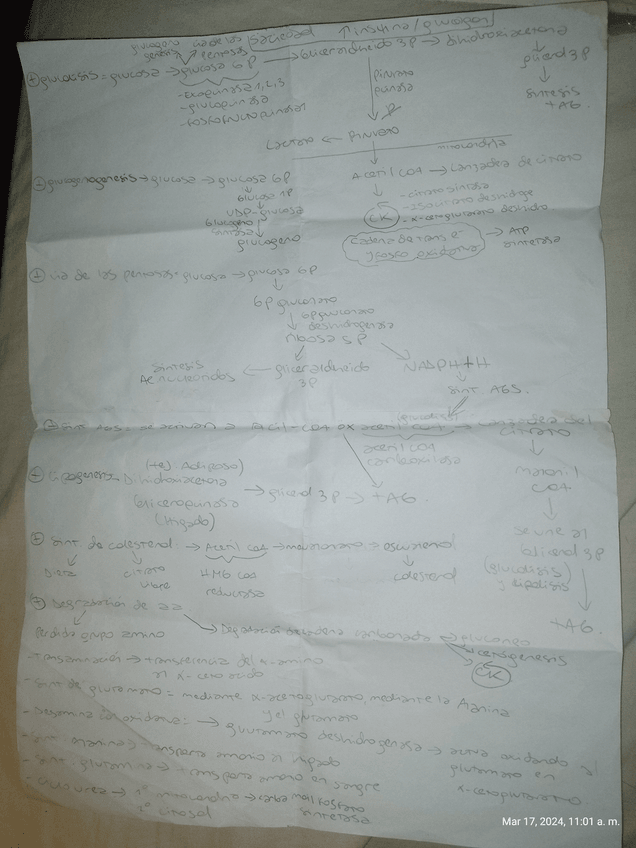 Saciedad ↑ insulina/glucagon
glucogeno vía de las
genesis pentosas
+ glucolisis = glucosa → glucosa 6P → Gliceraldehido 3P → dihidroxiacetona
- exoquinasa 1,2,3
- glucoquinasa
- fosfofructoquinasa 1
glicerol 3P
síntesis
+ AG.
piruvato
quinasa
Lactato ← Piruvato
mitocondria
Acetil CoA → Lanzadera de citrato
- citrato sintasa
- isocitrato deshidge
- α-cetoglutarato deshidro
CK
Cadena de trans e-
y fosfo oxidativa → ATP
sintetasa
+ glucogenogenesis → glucosa → glucosa 6P
Glucosa 1P
UDP-glucosa
Glucogeno
sintasa
glucogeno
+ via de las pentosas = glucosa → glucosa 6P
6P gluconato
6P gluconato
deshidrogenasa
ribosa 5P
síntesis
Ac nucleicos ← gliceraldehido
3P
NADPH+H
sint. AGS
citrato
acetil COA
carboxilasa
malonil
COA
se une al
Glicerol 3P
(glucolisis)
y lipolisis
+AG.
+ Lipogenesis =
(tej Adiposo)
Dihidroxiacetona
Gliceroquinasa → glicerol 3P → +AG.
(Higado)
+ Sint de colesterol → Acetil coa → mevalonato → escualeno
Dieta citrato
libre HMG coa
reductasa
colesterol
+ Degradación de aa
Perdida grupo amino
Degradación cadena carbonada → gluconeo
→ cetogenesis
CK
- transaminación → transferencia del α-amino
al α-ceto acido
- Sint de glutamato = mediante α-cetoglutarato, mediante la Alanina
y el glutamato
- Desamina ion oxidativa: → glutamato deshidrogenasa → actua oxidando al
glutamato en
α-cetoglutarato
- Sint. alanina → transporta amonio al higado
- Sint. glutamina → transporta amonio en sangre
1º mitocondria → carbamoil fosfato
sintetasa
2º citosol
Mar 17, 2024, 11:01 a. m.